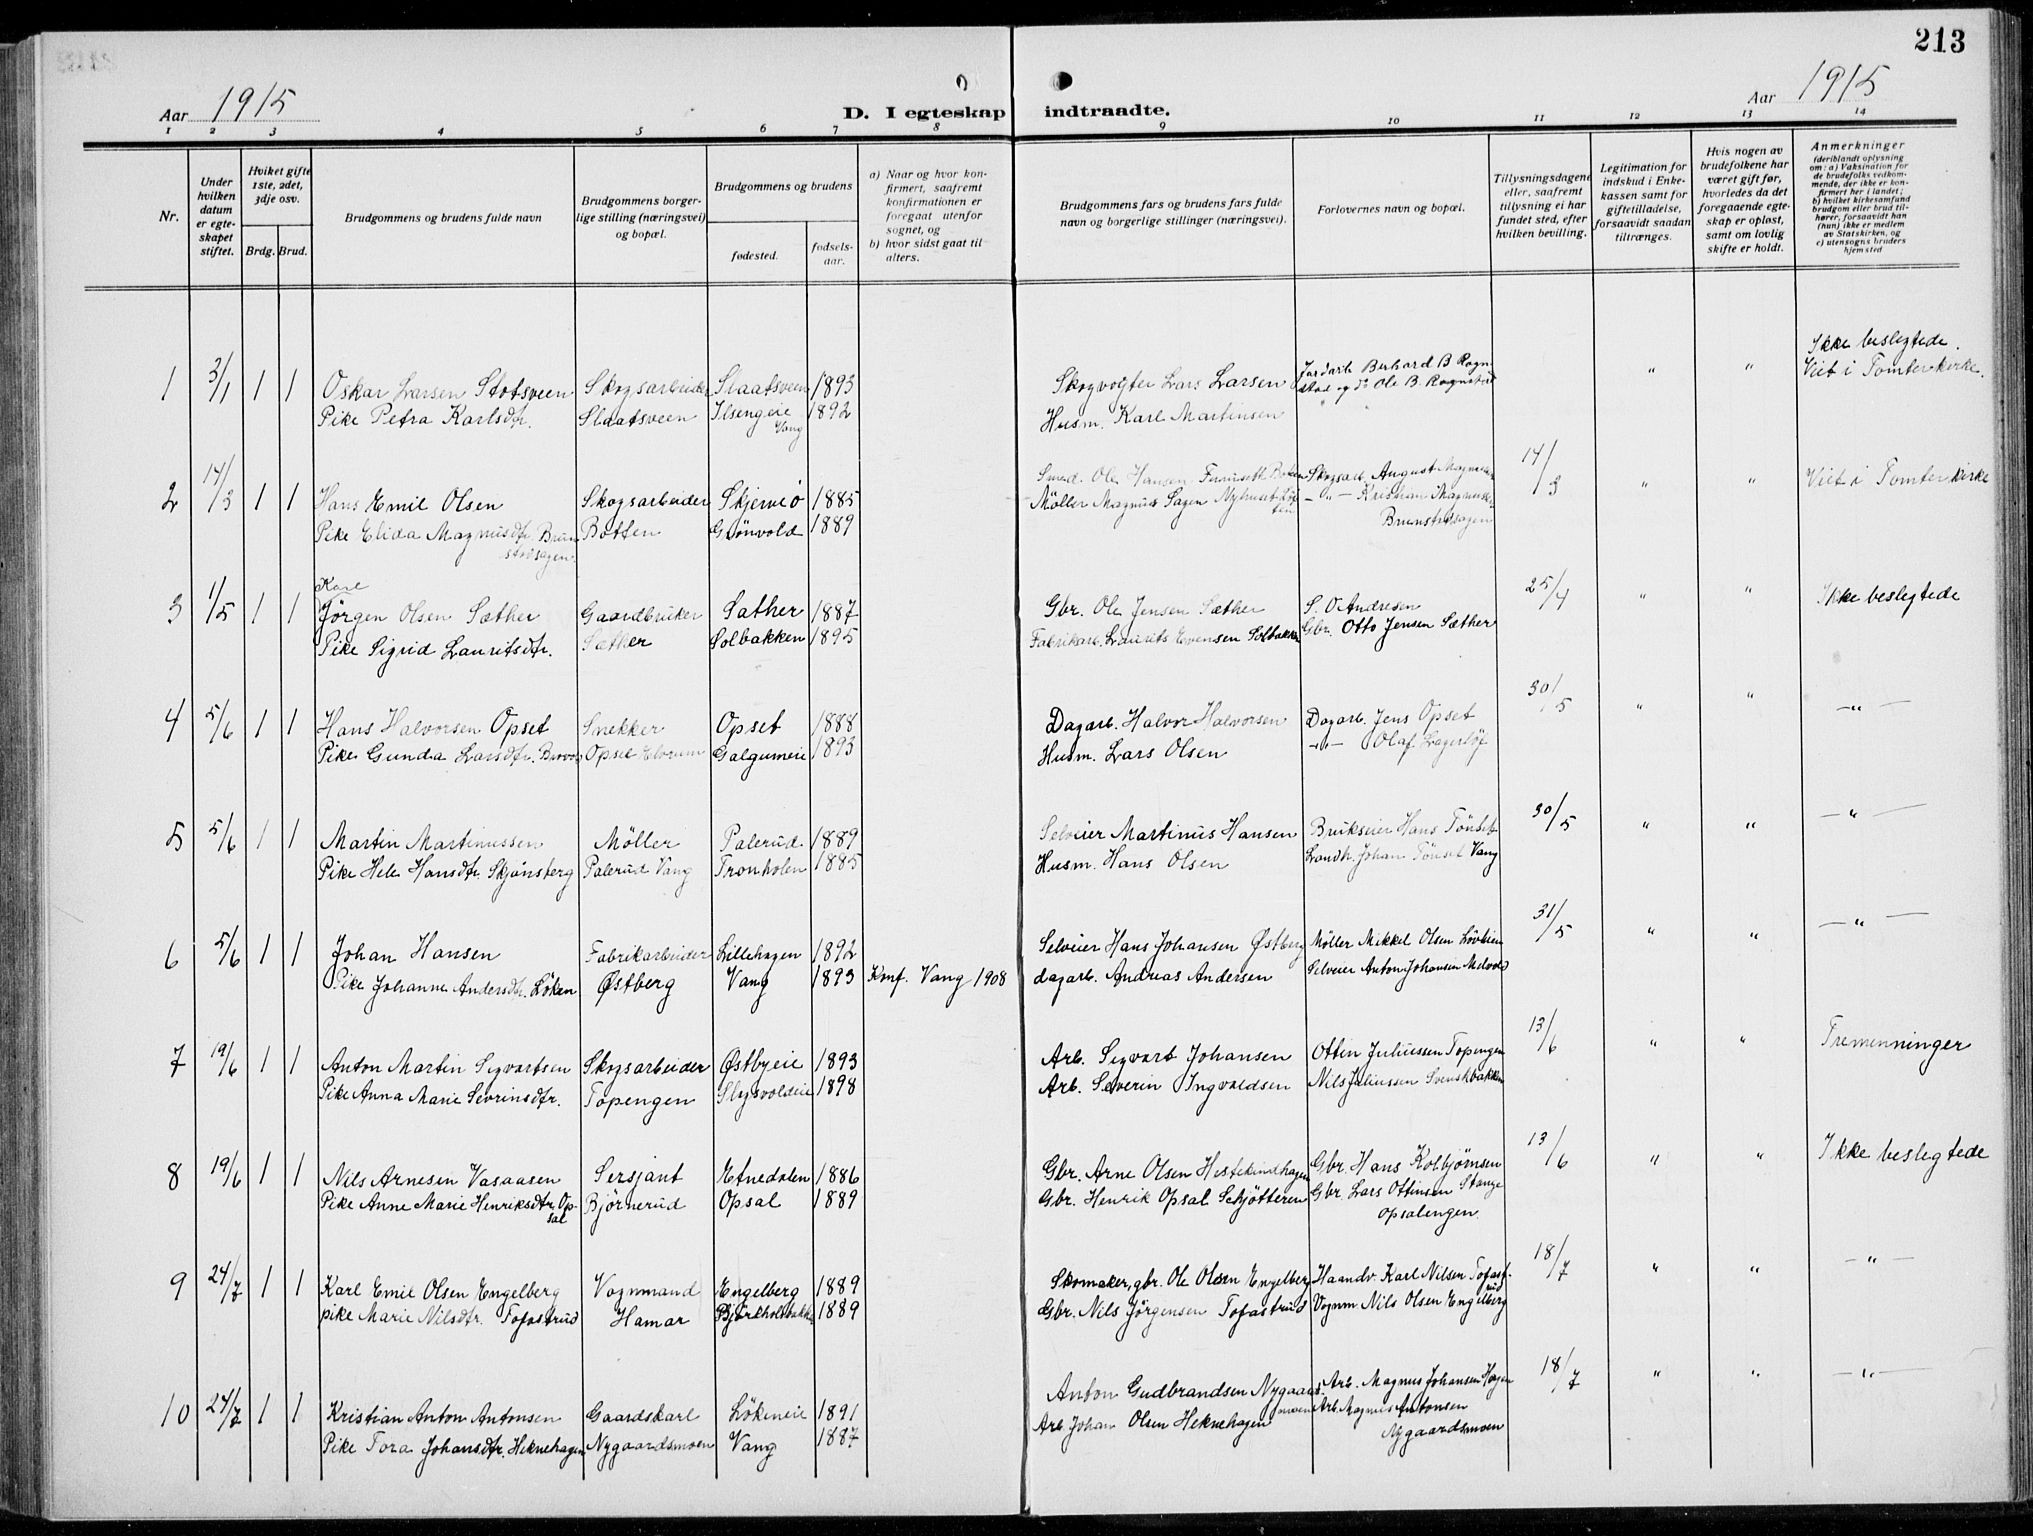 213
Aar 1915
D. I egteskap indtraadte.
Aar 1915
1 2 3 4 5 6 7 8 9 10 11 12 13 14
Nr.
Under hvilken datum er egteskapet stiftet.
Hvilket gifte 1ste, 2det, 3dje osv.
Brdg. Brud.
Brudgommens og brudens fulde navn
Brudgommens borgerlige stilling (næringsvei) og bopæl.
Brudgommens og brudens
fødested.
fødselsaar.
a) Naar og hvor konfirmert, saafremt konfirmationen er foregaat utenfor sognet, og
b) hvor sidst gaat til alters.
Brudgommens fars og brudens fars fulde navn og borgerlige stillinger (næringsvei).
Forlovernes navn og bopæl.
Tillysningsdagene eller, saafremt tillysning ei har fundet sted, efter hvilken bevilling.
Legitimation for indskud i Enkekassen samt for giftetilladelse, forsaavidt saadan tiltrænges.
Hvis nogen av brudefolkene har været gift før, hvorledes da det foregaaende egteskap er opløst, samt om lovlig skifte er holdt.
Anmerkninger
(deriblandt oplysning om: a) Vaksination for de brudefolks vedkommende, der ikke er konfirmert her i landet; b) hvilket kirkesamfund brudgom eller brud tilhører, forsaavidt han (hun) ikke er medlem av Statskirken, og c) utensogns bruders hjemsted
Ikke beslegtede.
1 3/1 1 1 Oskar Larsen Slotsveen Skogsarbeider Slaatsveen 1893 Skogvogter Lars Larsen Jordarb Berhard B Rognstad og do Ole B. Rognstad " " Viet i Tomter kirke.
Pike Petra Karlsdtr. Slaatsveen Ilsengeie Vang 1892 Husm. Karl Martinsen
2 14/3 1 1 Hans Emil Olsen Skogsarbeider Skjerviø 1885 Smed. Ole Hansen Skogsarb. August 14/3 " " Viet i Tomter kirke
Pike Elida Magnusdtr. Brunstolsagen Botten Grönvold 1889 Möller Magnus Sagen -"- Kristian
3 1/5 1 1 Karl Jörgen Olsen Sæther Gaardbruker Sæther 1887 Gbr. Ole Jensen Sæther S. O Andresen 25/4 " " Ikke beslegtede
Pike Sigrid Lauritsdtr. Sæther Solbakken 1895 Fabrikarb. Laurits Evensen Solbakken Gbr. Otto Jensen Sæther
4 5/6 1 1 Hans Halvorsen Opset Snekker Opset 1888 Dagarb. Halvor Halvorsen Dagarb. Jens Opset 30/5 " " -"-
Pike Gunda Larsdtr. Opset Elverum Galgumeie 1893 Husm. Lars Olsen -"- Olaf Lagerlöf
5 5/6 1 1 Martin Martinussen Möller Palerud 1889 Selveier Martinus Hansen Brukseier Hans Tönset 30/5 " " -"-
Pike Hele Hansdtr. Skjönsberg Palerud Vang Tronholen 1885 Husm. Hans Olsen Landh. Johan Tönset Vang
6 5/6 1 1 Johan Hansen Fabrikarbeider Lillehagen 1892 Selveier Hans Johansen Østberg Møller Mikkel Olsen Lövlien 31/5 " " -"-
Pike Johanne Andersdtr. Löken Østberg Vang 1893 Konf. Vang 1908 dagarb. Andreas Andersen Selveier Anton Johansen Melvold
7 19/6 1 1 Anton Martin Sigvartsen Skogsarbeider Østbyeie 1893 Arb. Sigvart Johansen Ottin Juliussen Topengen 13/6 " " Tremenninger
Pike Anna Marie Sevrinsdtr. Topengen Slysvoldeie 1898 Arb. Severin Ingvaldsen Nils Juliussen Svenskbakken
8 19/6 1 1 Nils Arnesen Vasaasen Sersjant Etnedalen 1886 Gbr. Arne Olsen Hestekindhagen Gbr. Hans Kolbjørnsen Stange 13/6 " " Ikke beslegtede
Pike Anne Marie Henriksdtr. Opsal Björnerud Opsal 1889 Gbr. Henrik Opsal Schjötteren Gbr. Lars Ottinsen Opsalengen.
9 24/7 1 1 Karl Emil Olsen Engelberg Vognmand Engelberg 1889 Skomaker, gbr. Ole Olsen Engelberg Haandv. Karl Nilsen Tofastrud 18/7 " " -"-
pike Marie Nilsdtr. Tofastrud Hamar Bjørkholtbakke 1889 Gbr. Nils Jörgensen Tofastrud Vognm Nils Olsen Engelberg
10 24/7 1 1 Kristian Anton Antonsen Gaardskarl Lökeneie 1891 Anton Gudbrandsen Nygaardsmoen Arb. Magnus Johansen Hagen 18/7 " " -"-
Pike Tora Johansdtr. Heknehagen Nygaardsmoen Vang 1887 Arb. Johan Olsen Heknehagen Arb. Magnus Antonsen Nygaardsmoen